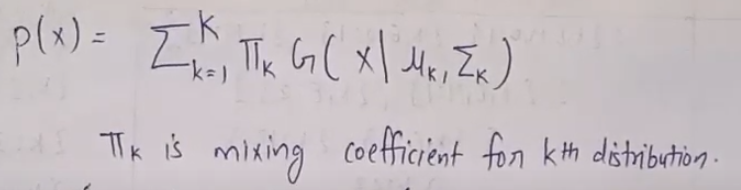 p(x) = Σ_{k=1}^{K} π_k G(x | μ_k, Σ_k)
π_k is mixing coefficient for kth distribution.